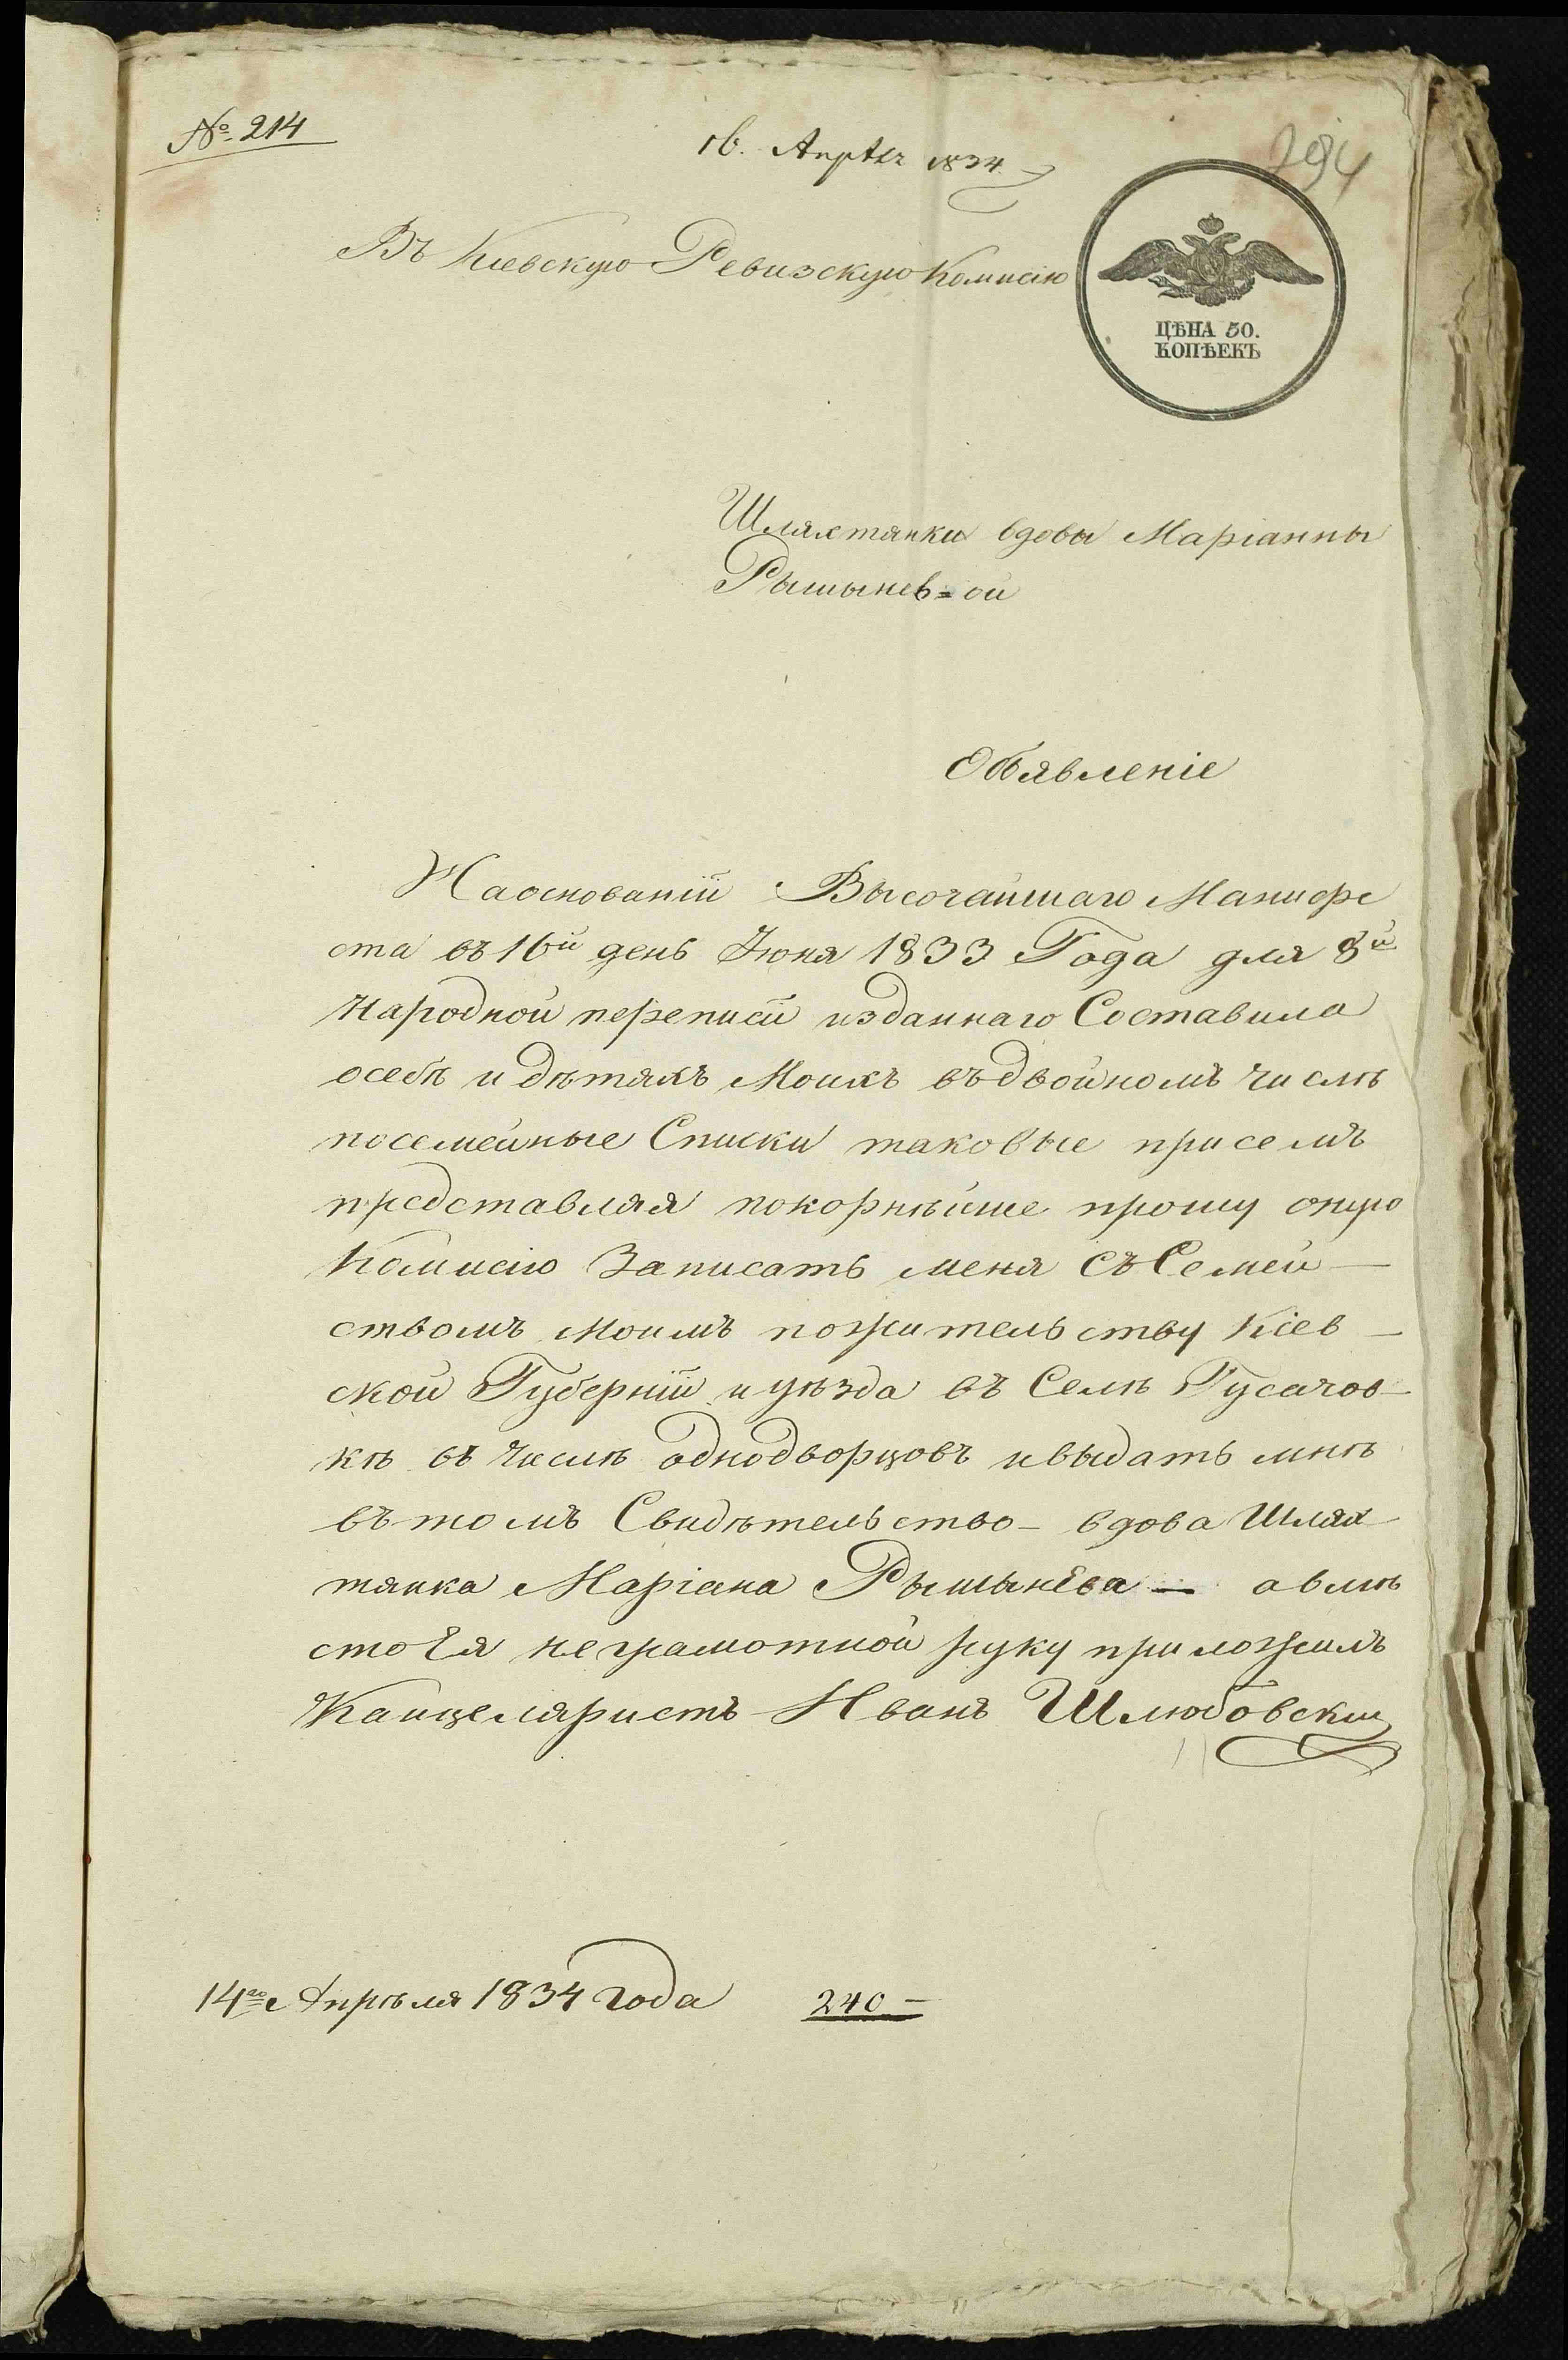 № 214
16. Апрѣля 1834
294
Въ Киевскую Ревизскую Комисію
ЦѢНА 50.
КОПѢЕКЪ
Шляхтянки вдовы Маріанны
Рышынев=ой
Объявленіе
На основаніи Высочайшаго Манифе
ста въ 16й день Июня 1833 Года для 8й
Народной переписи изданнаго Составила
осебѣ и дѣтяхъ Моихъ въдвойномъ числѣ
посемейные Списки таковые присемъ
представляя покорнѣйше прошу оную
Комисію Записать меня съ Семей—
ствомъ Моимъ пожительству Кіев—
ской Губерніи и уѣзда въ Селѣ Гусачов—
кѣ въ числѣ однодворцовъ ивыдать мнѣ
въ томъ Свидѣтельство — вдова Шлях
тянка Маріана Рышынева — авмѣ
сто Ея неграмотной руку приложилъ
Канцеляристъ Иванъ Шлюбовски
14го Апрѣля 1834 года 240 —